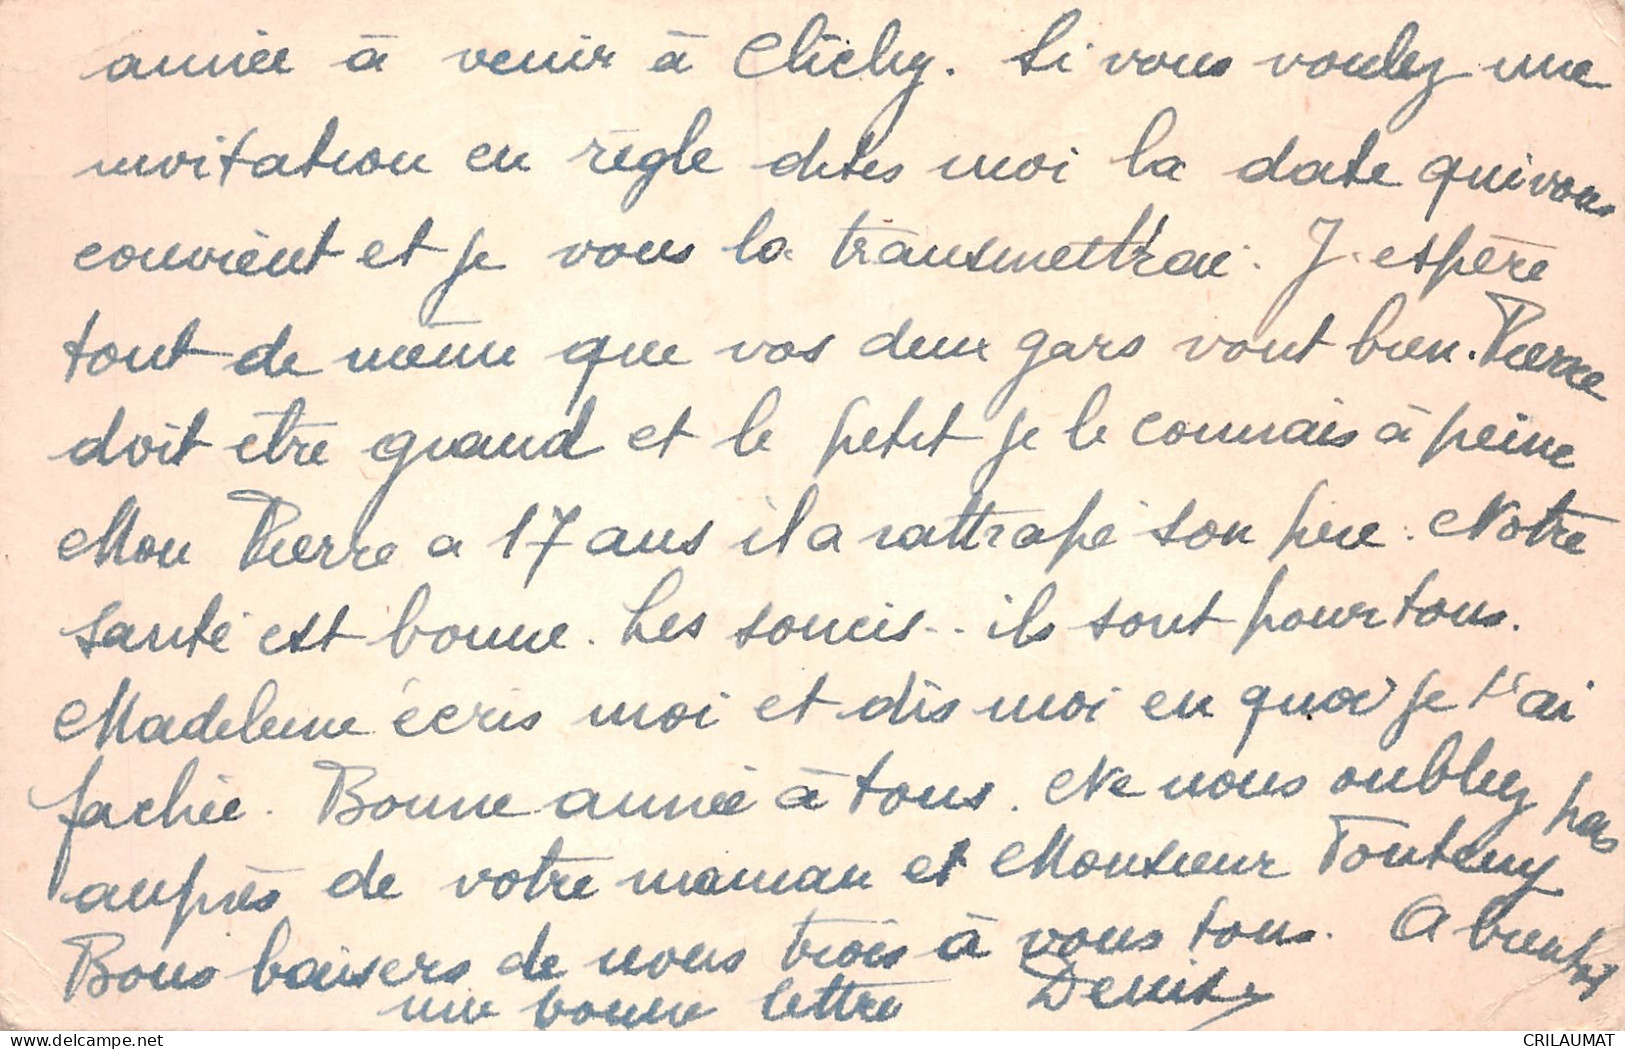 année à venir à Clichy. Si vous voulez une
invitation en règle dites moi la date qui vous
convient et je vous la transmettrai. J'espère
tout de même que vos deux gars vont bien. Pierre
doit être grand et le petit je le connais à peine
Mon Pierre a 17 ans il a rattrapé son père. Notre
santé est bonne. Les soucis.. ils sont pour tous.
Madeleine écris moi et dis moi en quoi je t'ai
fachée. Bonne année à tous. Ne nous oubliez pas
auprès de votre maman et Monsieur Fonteny
Bons baisers de nous trois à vous tous. A bientôt
une bonne lettre Denise
delcampe.net
CRILAUMAT